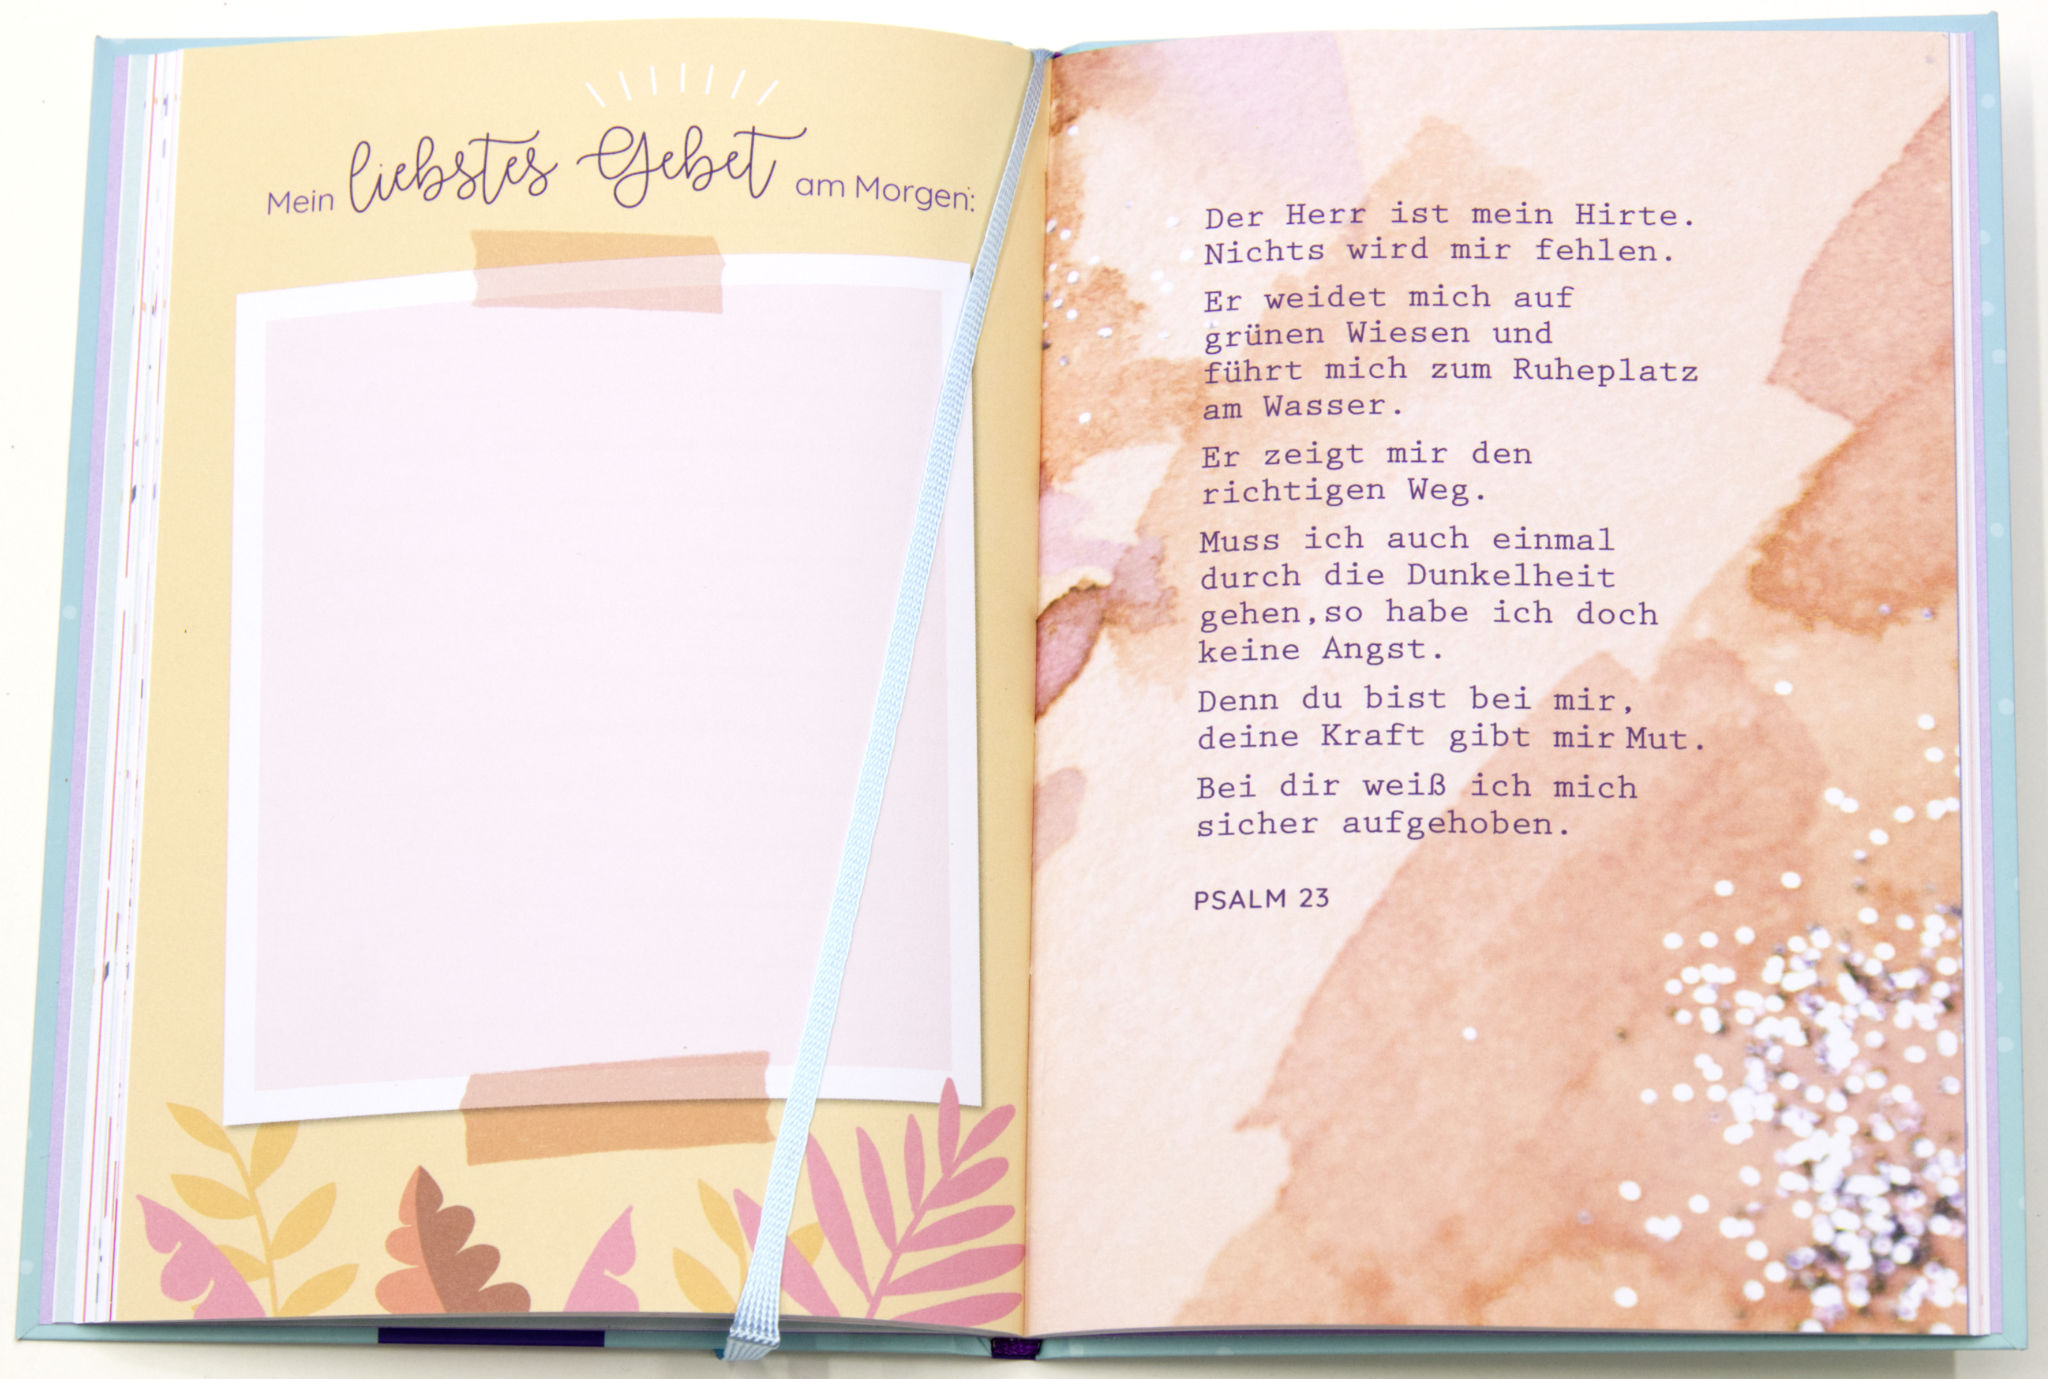 Mein liebstes Gebet am Morgen:
Der Herr ist mein Hirte.
Nichts wird mir fehlen.
Er weidet mich auf
grünen Wiesen und
führt mich zum Ruheplatz
am Wasser.
Er zeigt mir den
richtigen Weg.
Muss ich auch einmal
durch die Dunkelheit
gehen,so habe ich doch
keine Angst.
Denn du bist bei mir,
deine Kraft gibt mir Mut.
Bei dir weiß ich mich
sicher aufgehoben.
PSALM 23